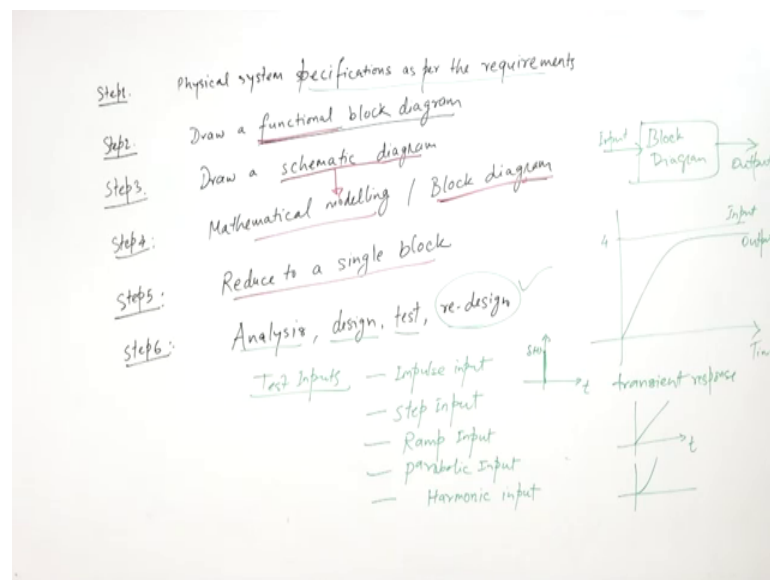 Step1. Physical system specifications as per the requirements
Step2. Draw a functional block diagram
Step3. Draw a schematic diagram
Step4: Mathematical modelling / Block diagram
Step5: Reduce to a single block
Step6: Analysis, design, test, re-design
Test Inputs — Impulse input
— Step input
— Ramp Input
— parabolic Input
— Harmonic input
Input
Block
Diagram
Output
Input
4
Output
Tim
t
transient response
t